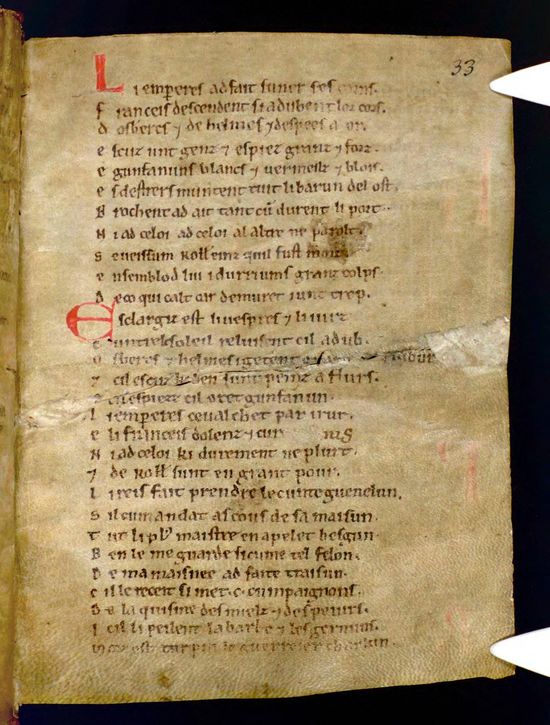 33
L i empereres ad fait suner ses corns.
f ranceis descendent si adubent lor cors.
d osbercs ⁊ de helmes ⁊ despees a or.
e scuz unt genz ⁊ espiez granz ⁊ forz.
e gunfanuns blancs ⁊ vermeilz ⁊ blois.
e s destrers muntent tuit li barun del ost.
B rochent ad ait tant cū durent li port.
N i ad celoi ad celoi al altre ne parolt.
s e veissum Roll einz quil fust
e nsemblod lui i durriums granz colps.
d e co qui calt car demuret i unt trop.
E sclargiz est li vespres ⁊ li iurz
c untre le soleil reluisent cil adub.
O sbercs ⁊ helmes i getent
⁊ cil escuz ki ben sunt peinz a flurs.
⁊ cil espiez cil oret gunfanun.
l i empereres cevalchet par irur.
e li franceis dolenz ⁊ cur
N i ad celoi ki durement ne plurt.
⁊ de Roll sunt en grant pour.
L i reis fait prendre le cunte guenelun.
s il cumandat as cous de sa maisun.
t ut li plꝰ maistre en apelet besgun.
B en le me guarde si cume tel felon.
D e ma maisnee ad faite traisun.
c il le receit si met .c. cumpaignons.
D e la quisine des mielz ⁊ des peiurs.
I cil li peilent la barbe ⁊ les gernuns.